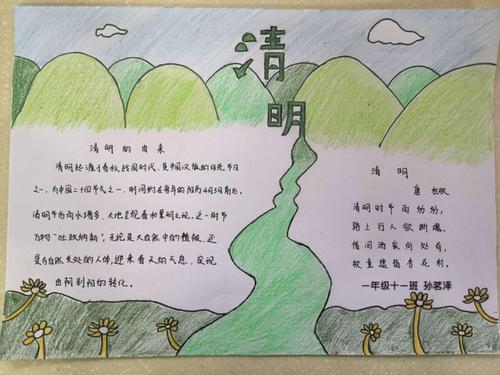 清明
清明的由来
清明起源于春秋战国时代,是中国汉族的传统节日
之一,为中国二十四节气之一,时间约在每年的阳历4月5日前后。
清明节雨水增多,大地呈现春和景明之说。这一时节
万物“吐故纳新”,无论是大自然中的植被,还
是与自然共处的人体,迎来春天的气息,实现
由阴到阳的转化。
清 明
唐 杜牧
清明时节雨纷纷,
路上行人欲断魂。
借问酒家何处有,
牧童遥指杏花村。
一年级十一班 孙茗泽